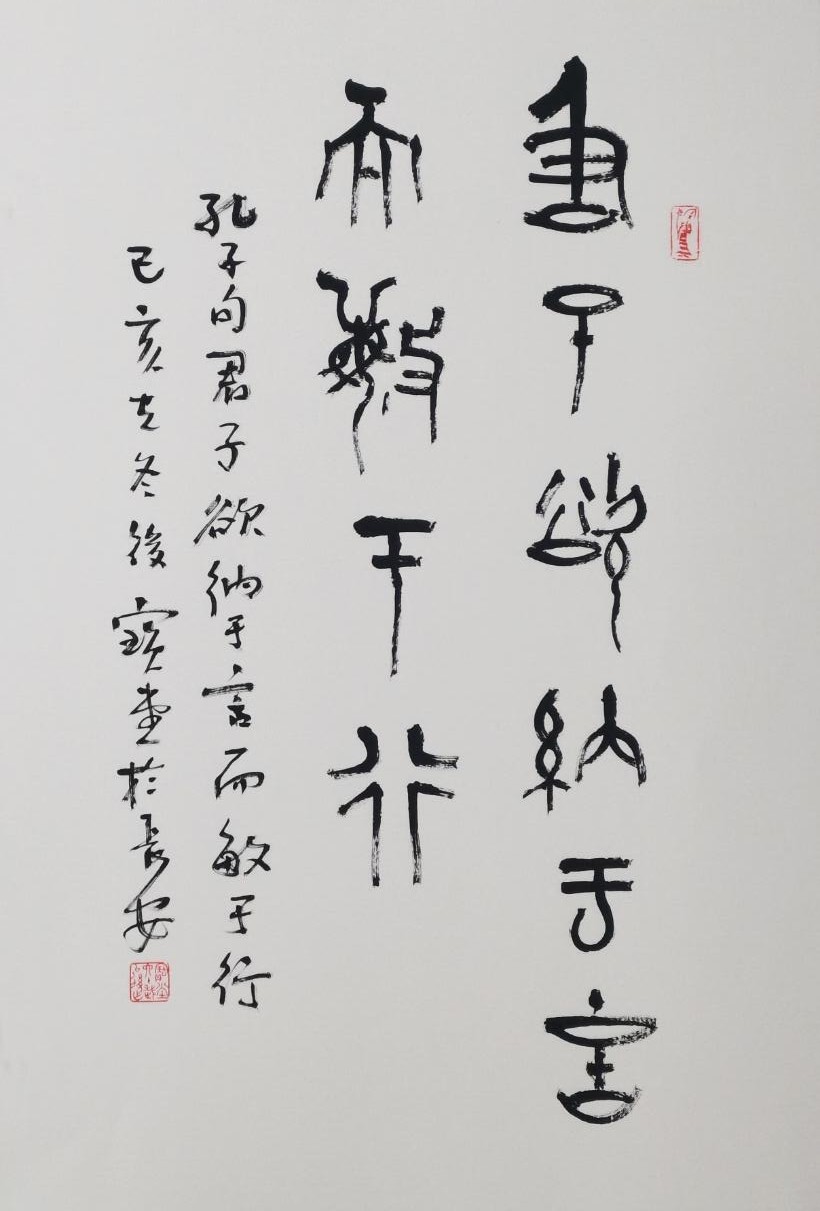 君子欲納于言
而敏于行
孔子句君子欲納于言而敏于行
己亥立冬後寶堂於長安